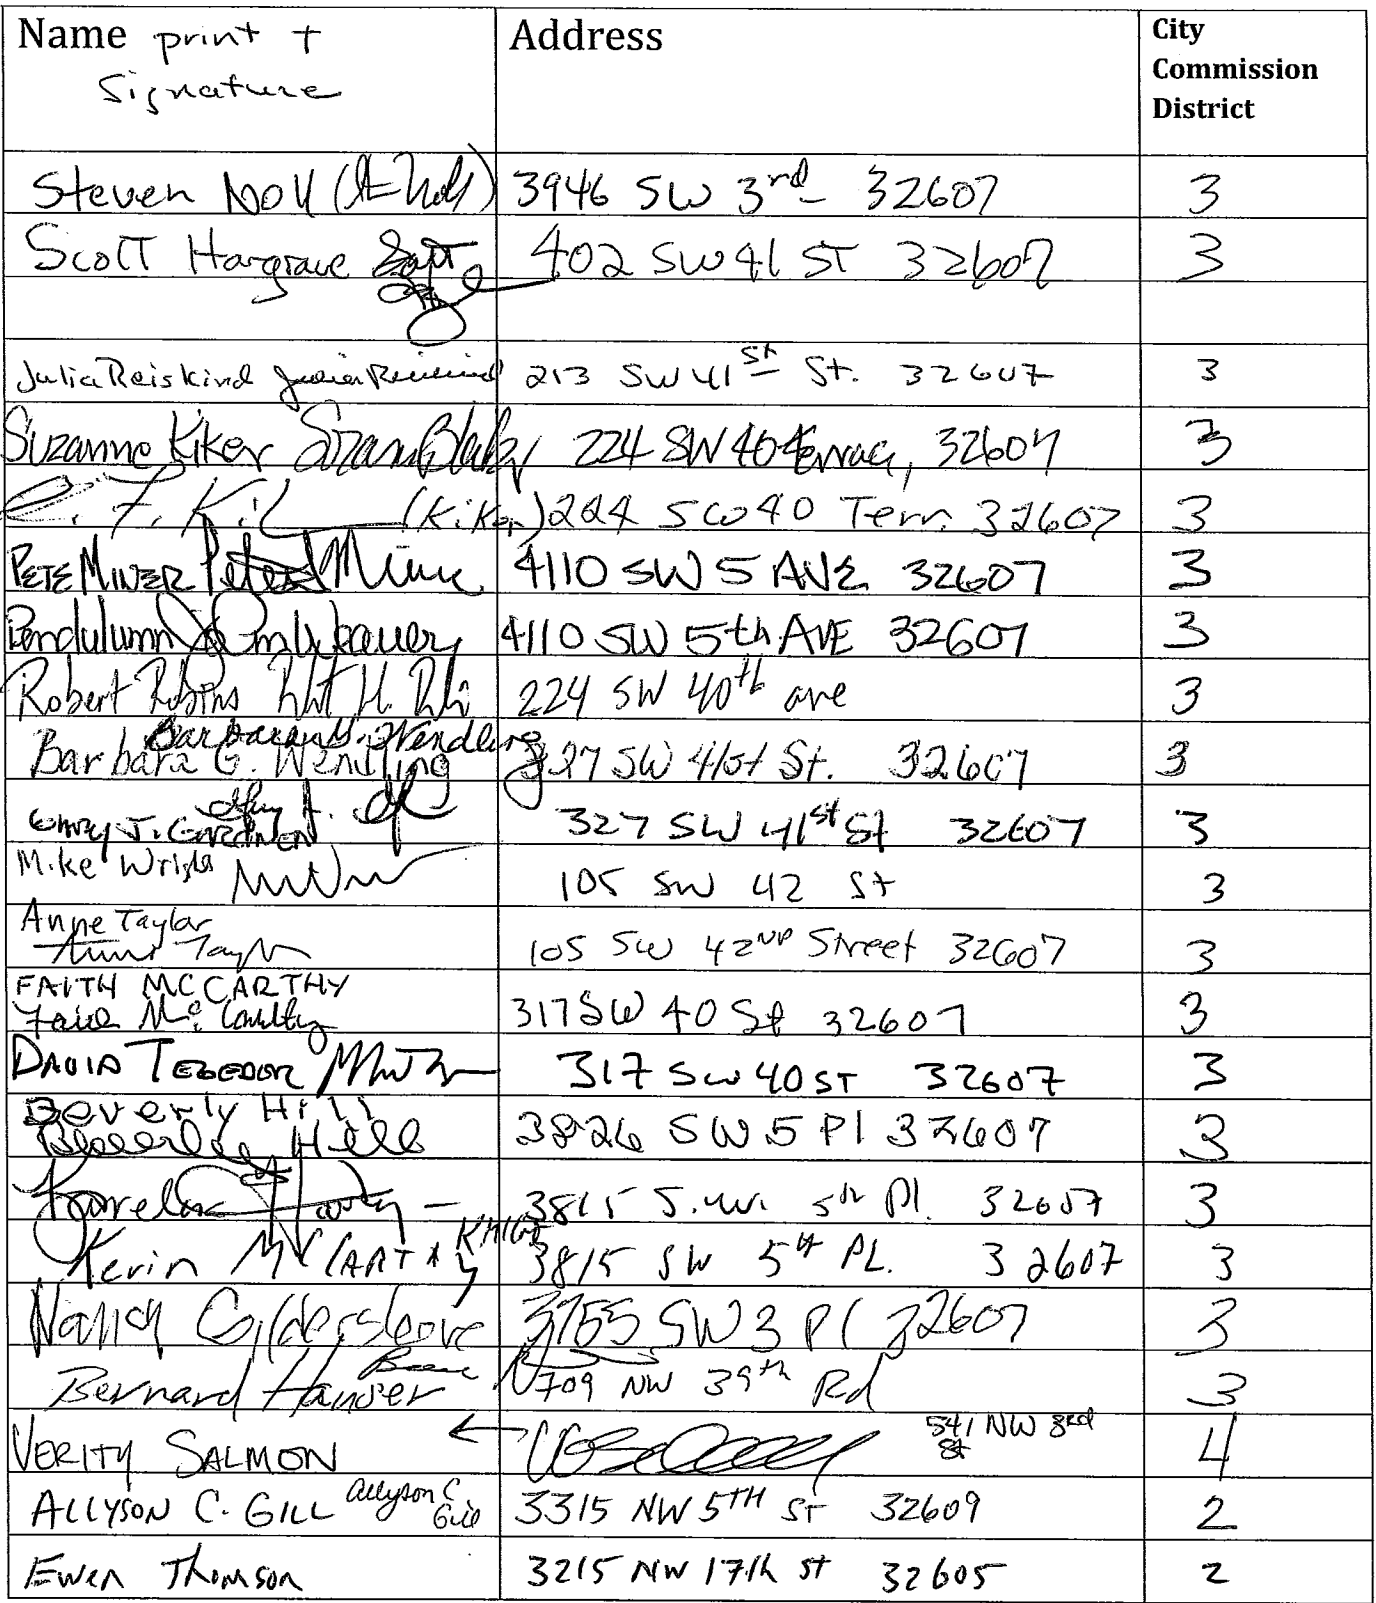 Name print + Address City
Signature Commission
District
Steven Noll 3946 SW 3rd 32607 3
Scott Hargrave Scott 402 SW 41 ST 32607 3
Julia Reiskind Julia Reiskind 213 SW 41st St. 32607 3
Suzanne Kiker 224 SW 40 terrace, 32607 3
(Kiker) 224 SW 40 Terr. 32607 3
PETE MINER Peter Miner 4110 SW 5 AVE 32607 3
Pendulumn 4110 SW 5th AVE 32607 3
Robert Robins 224 SW 40th ave 3
Barbara G. Wendling
Barbara G. Wendling 327 SW 41st St. 32607 3
GARY J. 327 SW 41st St 32607 3
Mike Wright 105 SW 42 St 3
Anne Taylor
Anne Taylor 105 SW 42ND Street 32607 3
FAITH MCCARTHY
Faith McCarthy 317 SW 40 St 32607 3
DAVID TEGEDOR 317 SW 40 ST 32607 3
Beverly Hill
Beverley Hill 3826 SW 5 Pl 32607 3
3815 S.W. 5th Pl. 32607 3
Kevin McCARTHY 3815 SW 5th PL. 32607 3
Nancy Gildersleeve 3755 SW 3 Pl 32607 3
Bernard Hauser 709 NW 39th Rd 3
VERITY SALMON ← 541 NW 3rd St 4
ALLYSON C. GILL Allyson C Gill 3315 NW 5TH ST 32609 2
Ewen Thomson 3215 NW 17th St 32605 2